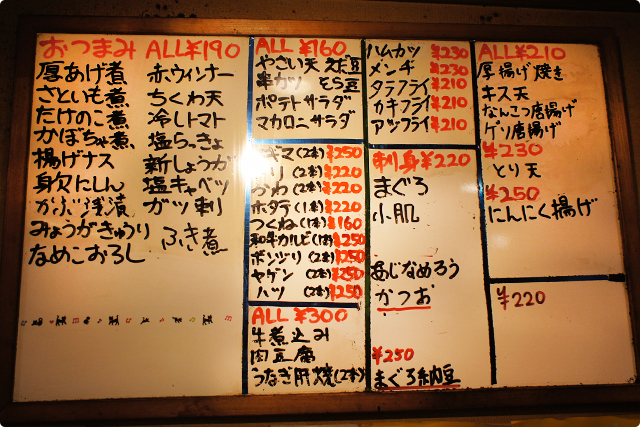 おつまみ ALL¥190
厚あげ煮 赤ウィンナー
さといも煮 ちくわ天
たけのこ煮 冷しトマト
かぼちゃ煮 塩らっきょ
揚げナス 新しょうが
身欠にしん 塩キャベツ
かぶ浅漬 ガツ刺
みょうがきゅうり ふき煮
なめこおろし
ALL ¥160
やさい天 枝豆
串カツ そら豆
ポテトサラダ
マカロニサラダ
ギマ(2本)¥250
リ(2本)¥220
かわ(2本)¥220
ホタテ(1本)¥220
つくね(1本)¥160
和牛カルビ(1本)¥250
ボンヅリ(2本)¥250
ヤゲン(2本)¥250
ハツ(2本)¥250
ALL ¥300
牛煮込み
肉豆腐
うなぎ肝焼(2本)
ハムカツ ¥230
メンチ ¥230
タラフライ¥210
カキフライ¥210
アジフライ¥210
刺身¥220
まぐろ
小肌
あじなめろう
かつお
¥250
まぐろ納豆
ALL¥210
厚揚げ焼き
キス天
なんこつ唐揚げ
ゲソ唐揚げ
¥230
とり天
¥250
にんにく揚げ
¥220